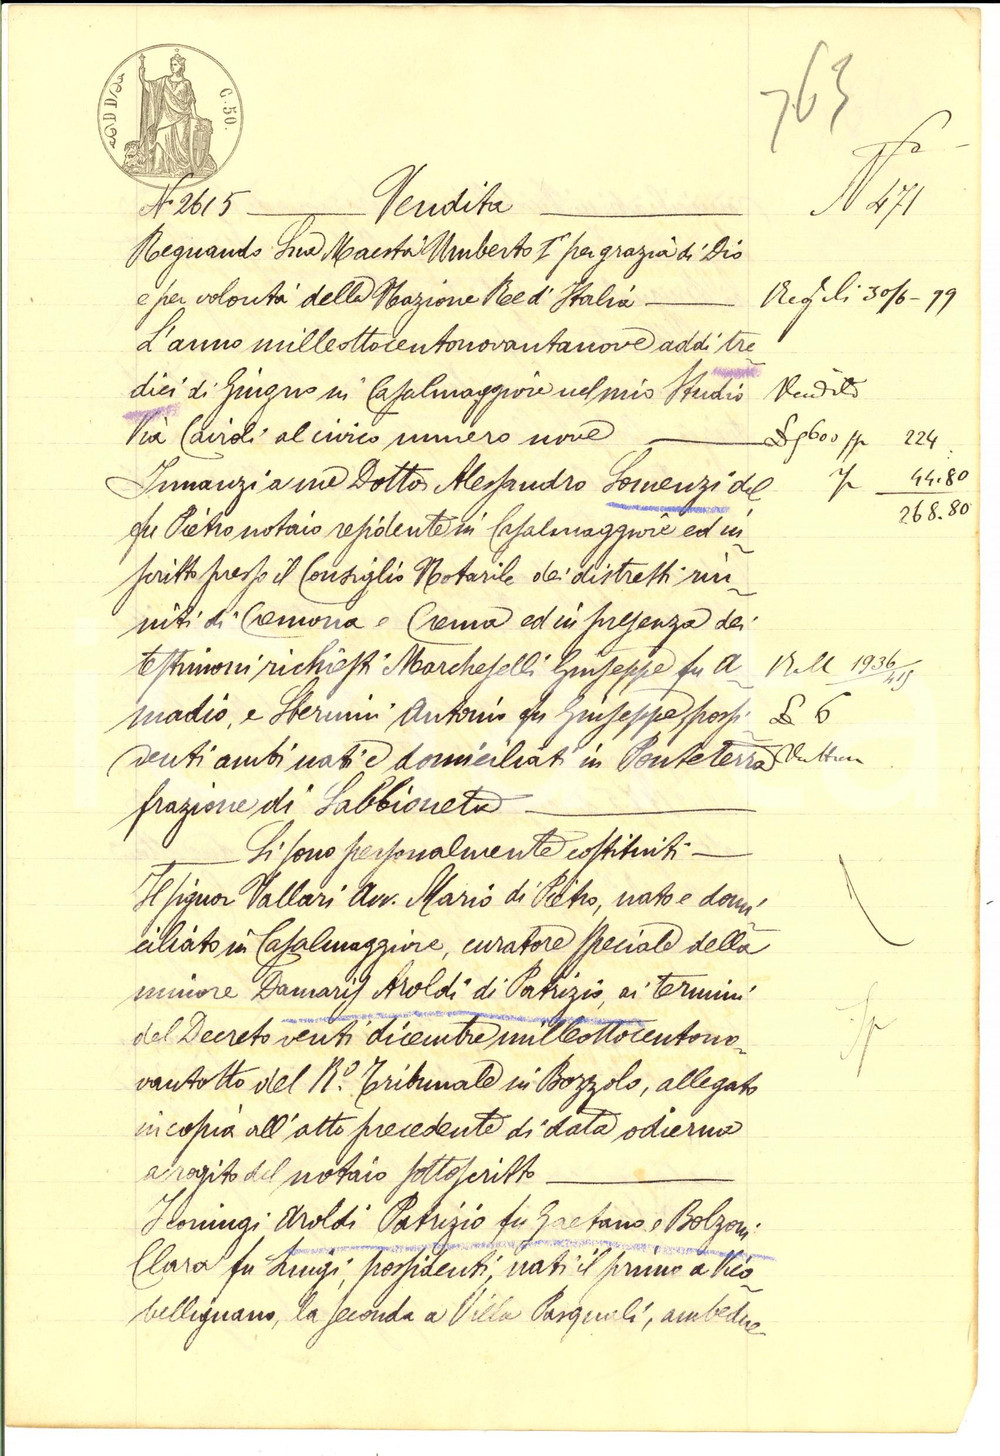 763
C. 50.
N° 471
N° 2615 Vendita
Regnando Sua Maestà Umberto I° per grazia di Dio
e per volontà della Nazione Re d'Italia
Reg. li 30/6 - 99
L'anno milleottocentonovantanove addi tre
dici di Giugno in Casalmaggiore nel mio Studio
Vendita
Via Cairoli al civico numero nove
£ 5600 pp 224
Innanzi a me Dottor Alessandro Lomenzi del
44.80
fu Pietro notaio residente in Casalmaggiore ed in
268.80
scritto presso il Consiglio Notarile dei distretti riu
niti di Cremona e Crema ed in presenza dei
testimoni richiesti Marcheselli Giuseppe fu A
R.M 1936/415
madio, e Sbernini Antonio fu Giuseppe, possi
£ 6
denti ambi nati e domiciliati in Ponteterra
frazione di Sabbioneta
Si sono personalmente costituiti
Il signor Vallari Avv. Mario di Pietro, nato e domi
ciliato in Casalmaggiore, curatore speciale della
minore Damaris Aroldi di Patrizio, ai termini
del Decreto venti dicembre milleottocentono-
vantotto del R.° Tribunale in Bozzolo, allegato
in copia all'atto precedente di data odierna
a rogito del notaio sottoscritto
I coniugi Aroldi Patrizio fu Gaetano e Bolzoni
Clara fu Luigi, possidenti, nati il primo a Vico-
bellignano, la seconda a Villa Pasquali, ambedue